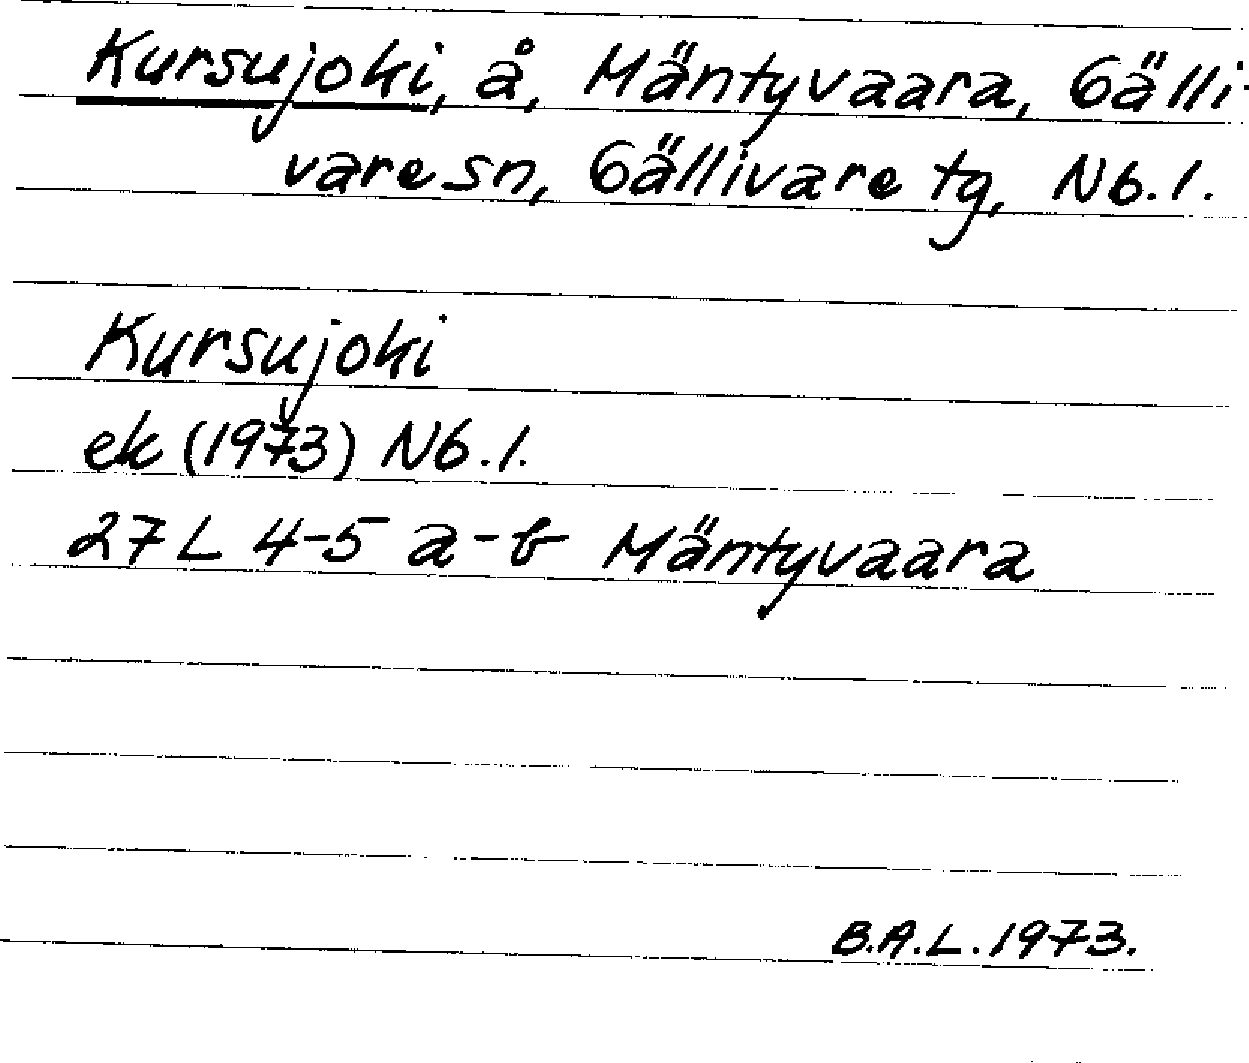 Kursujoki, å, Mäntyvaara, Gälli-
vare sn, Gällivare tg, Nb.l.
Kursujoki
ek (1973) Nb.l.
27 L 4-5 a-b Mäntyvaara
B.A.L. 1973.